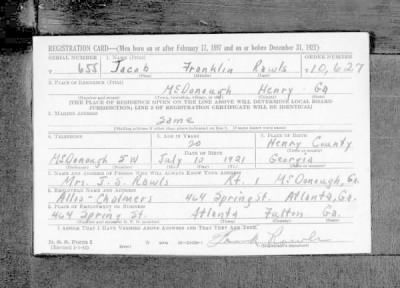 REGISTRATION CARD—(Men born on or after February 17, 1897 and on or before December 31, 1921)
SERIAL NUMBER 1. NAME (Print) ORDER NUMBER
655 Jacob Franklin Rawls 10,627
(First) (Middle) (Last)
2. PLACE OF RESIDENCE (Print)
McDonough Henry Ga
(Number and street) (Town, township, village, or city) (County) (State)
[THE PLACE OF RESIDENCE GIVEN ON THE LINE ABOVE WILL DETERMINE LOCAL BOARD
JURISDICTION; LINE 2 OF REGISTRATION CERTIFICATE WILL BE IDENTICAL]
3. MAILING ADDRESS
Same
[Mailing address if other than place indicated on line 2. If same insert word same]
4. TELEPHONE 5. AGE IN YEARS 6. PLACE OF BIRTH
20 Henry County
DATE OF BIRTH (Town or county)
McDonough 5W July 13 1921 Georgia
(Exchange) (Number) (Mo.) (Day) (Yr.) (State or country)
7. NAME AND ADDRESS OF PERSON WHO WILL ALWAYS KNOW YOUR ADDRESS
Mrs. J. S. Rawls Rt. 1 McDonough, Ga.
8. EMPLOYER'S NAME AND ADDRESS
Allis-Chalmers 464 Spring St. Atlanta, Ga.
9. PLACE OF EMPLOYMENT OR BUSINESS
464 Spring St. Atlanta Fulton Ga.
(Number and street or R. F. D. number) (Town) (County) (State)
I AFFIRM THAT I HAVE VERIFIED ABOVE ANSWERS AND THAT THEY ARE TRUE.
D. S. S. Form 1
(over)
Rawls